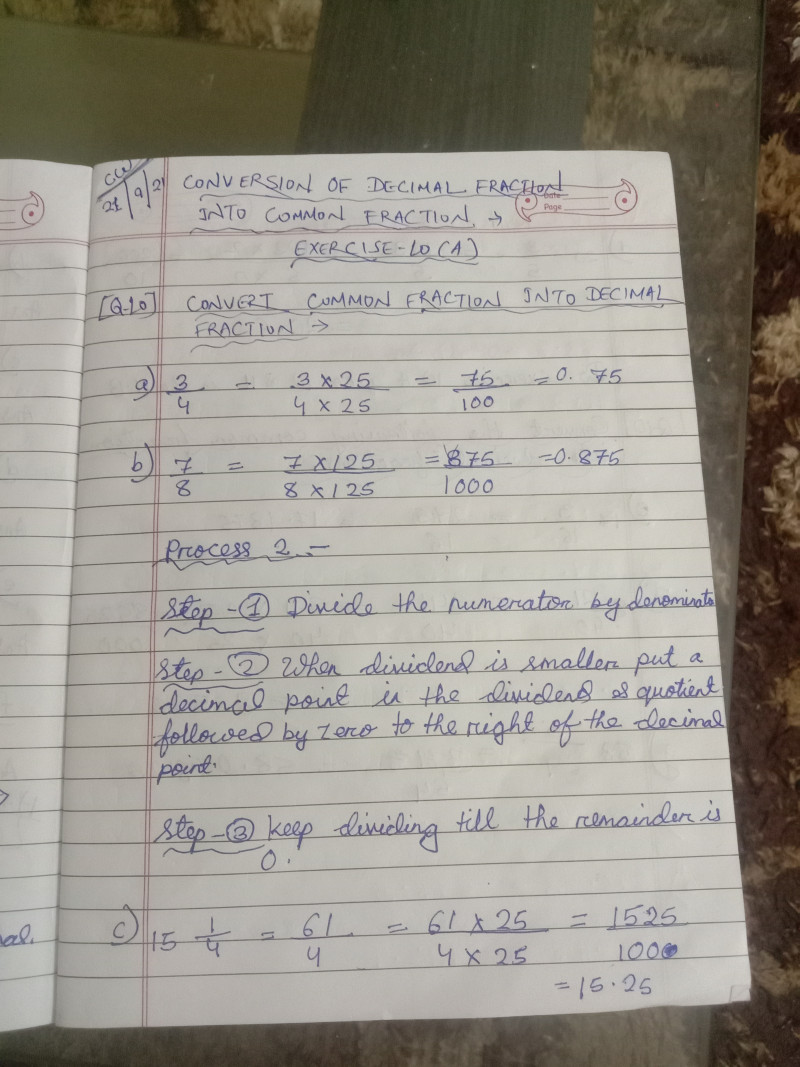 C.W
21/9/21
CONVERSION OF DECIMAL FRACTION
INTO COMMON FRACTION →
Date
Page
EXERCISE-10(A)
[Q-10] CONVERT COMMON FRACTION INTO DECIMAL
FRACTION →
a) 3/4 = 3 × 25 / 4 × 25 = 75/100 = 0.75
b) 7/8 = 7 × 125 / 8 × 125 = 875/1000 = 0.875
Process 2 –
Step - 1 Divide the numerator by denominato
Step - 2 When dividend is smaller put a
decimal point in the dividend & quotient
followed by zero to the right of the decimal
point.
Step - 3 Keep dividing till the remainder is
0.
c) 15 1/4 = 61/4 = 61 × 25 / 4 × 25 = 1525/100
= 15.25
al.